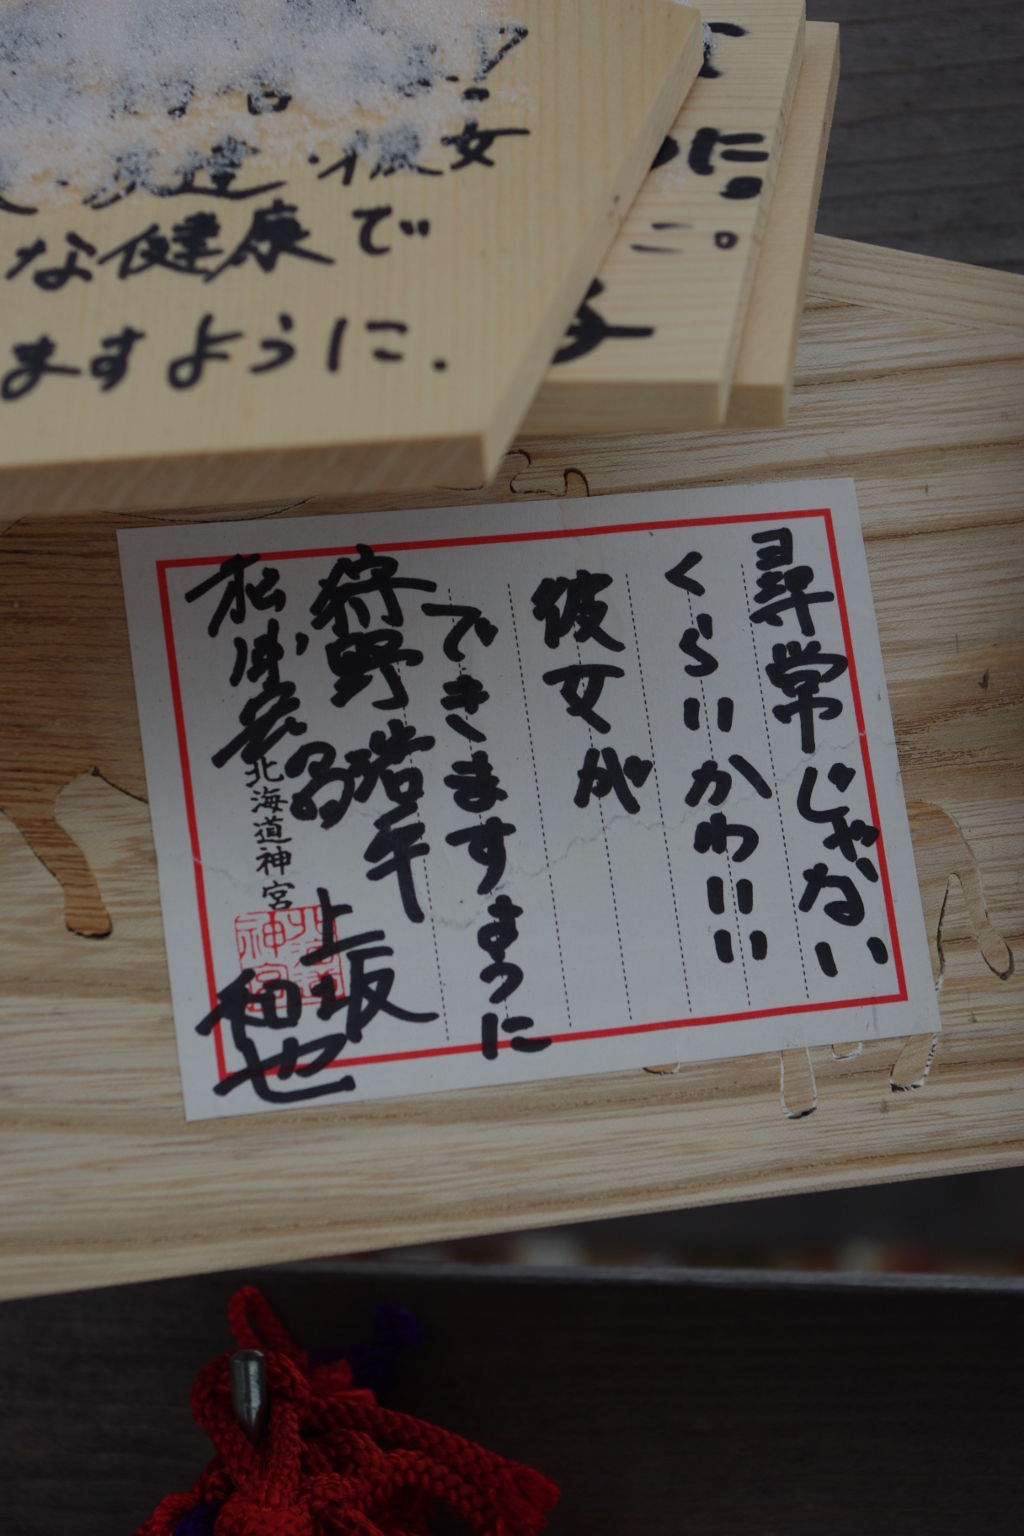 友達・彼女
な健康で
ますように.
に。
こ。
尋常じゃない
くらいかわいい
彼女が
できますように
狩野岩平
上坂
和也
北海道神宮